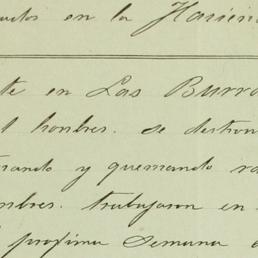 en la Hacien
te en Las Burra
l hombres. se destron
rando y quemando ra
mbres. trabajaron en
proxima Semana